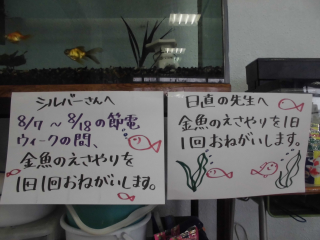 シルバーさんへ
8/17 〜 8/18の節電
ウィークの間、
金魚のえさやりを
1日1回おねがいします。
日直の先生へ
金魚のえさやりを1日
1回おねがいします。